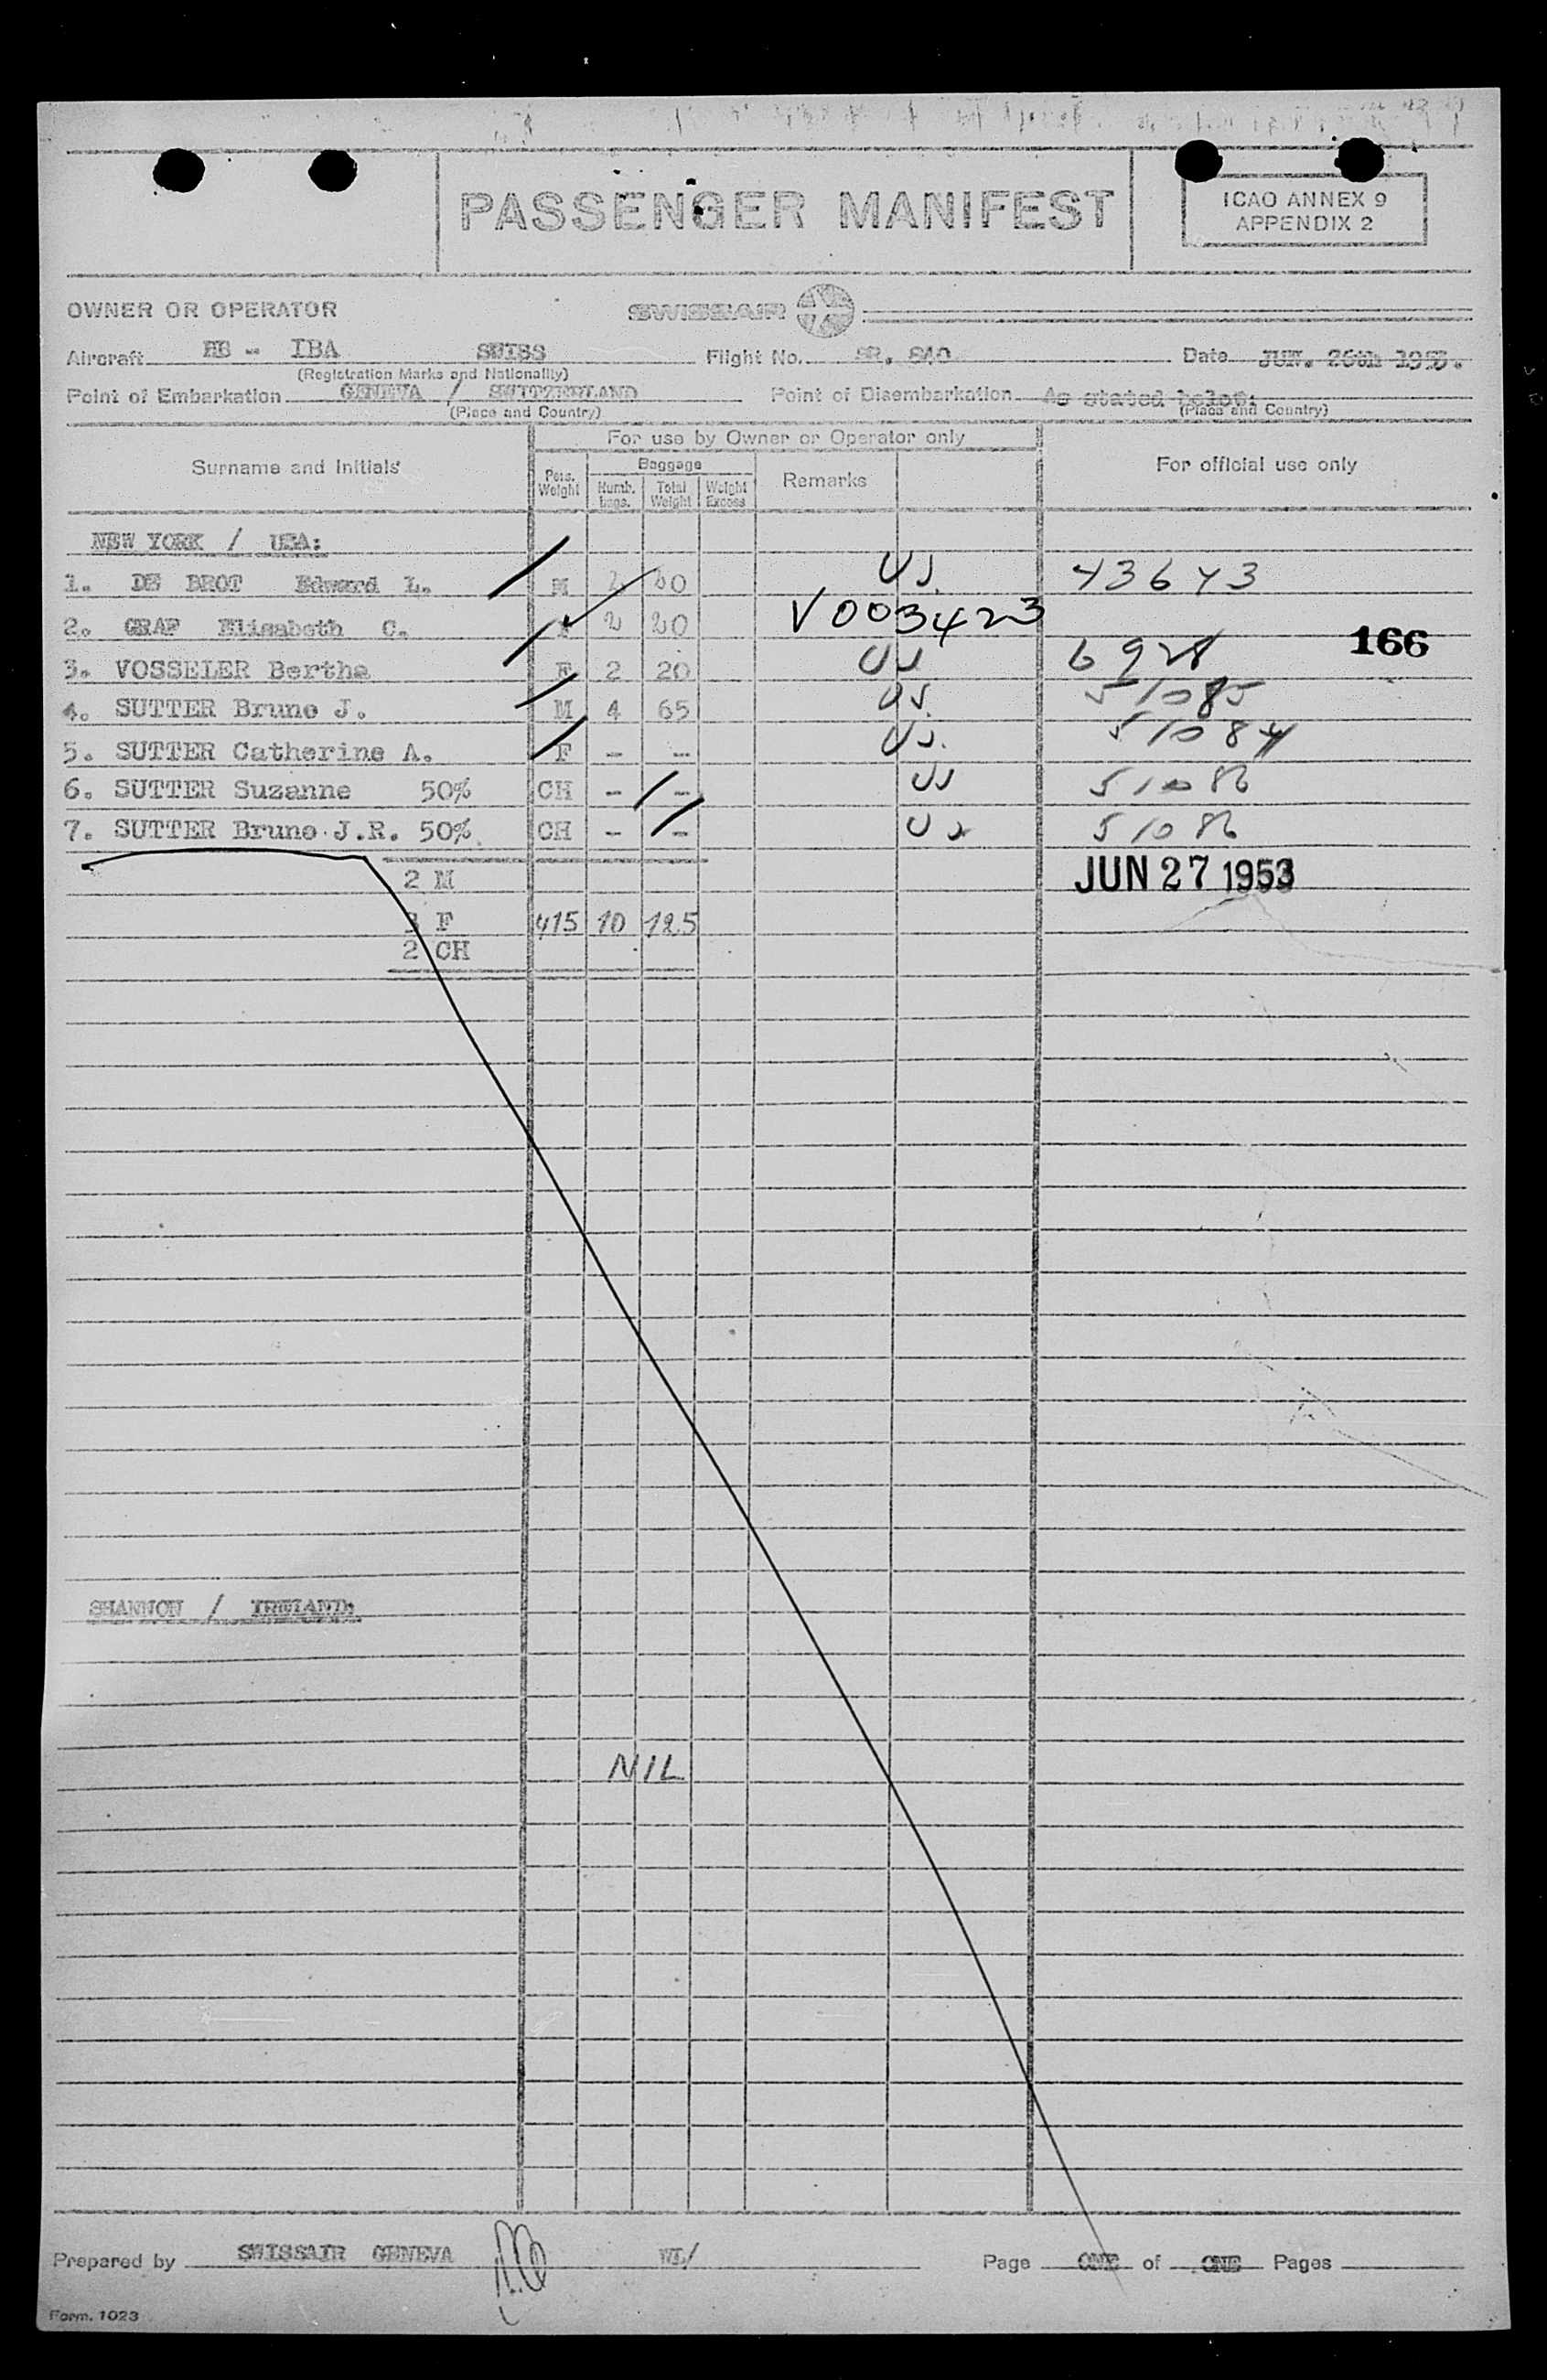 PASSENGER MANIFEST
ICAO ANNEX 9
APPENDIX 2
OWNER OR OPERATOR SWISSAIR
Aircraft HB - IBA SWISS Flight No. SR. 840 Date JUN. 26th 1953.
(Registration Marks and Nationality)
Point of Embarkation GENEVA / SWITZERLAND Point of Disembarkation As stated below:
(Place and Country) (Place and Country)
For use by Owner or Operator only
Surname and Initials Pers. Weight Baggage Numb. bags. Total Weight Weight Excess Remarks For official use only
NEW YORK / USA:
1. DE BROT Edward L. M 2 20 US. 43643
2. GRAF Elisabeth C. F 2 20 V003423
166
3. VOSSELER Bertha F 2 20 US 6928
4. SUTTER Bruno J. M 4 65 US. 51085
5. SUTTER Catherine A. F - - US. 51084
6. SUTTER Suzanne 50% CH - - US 51086
7. SUTTER Bruno J.R. 50% CH - - US 51086
2 M JUN 27 1953
3 F 415 10 125
2 CH
SHANNON / IRELAND:
NIL
Prepared by SWISSAIR GENEVA WL/ Page ONE of ONE Pages
Form. 1023